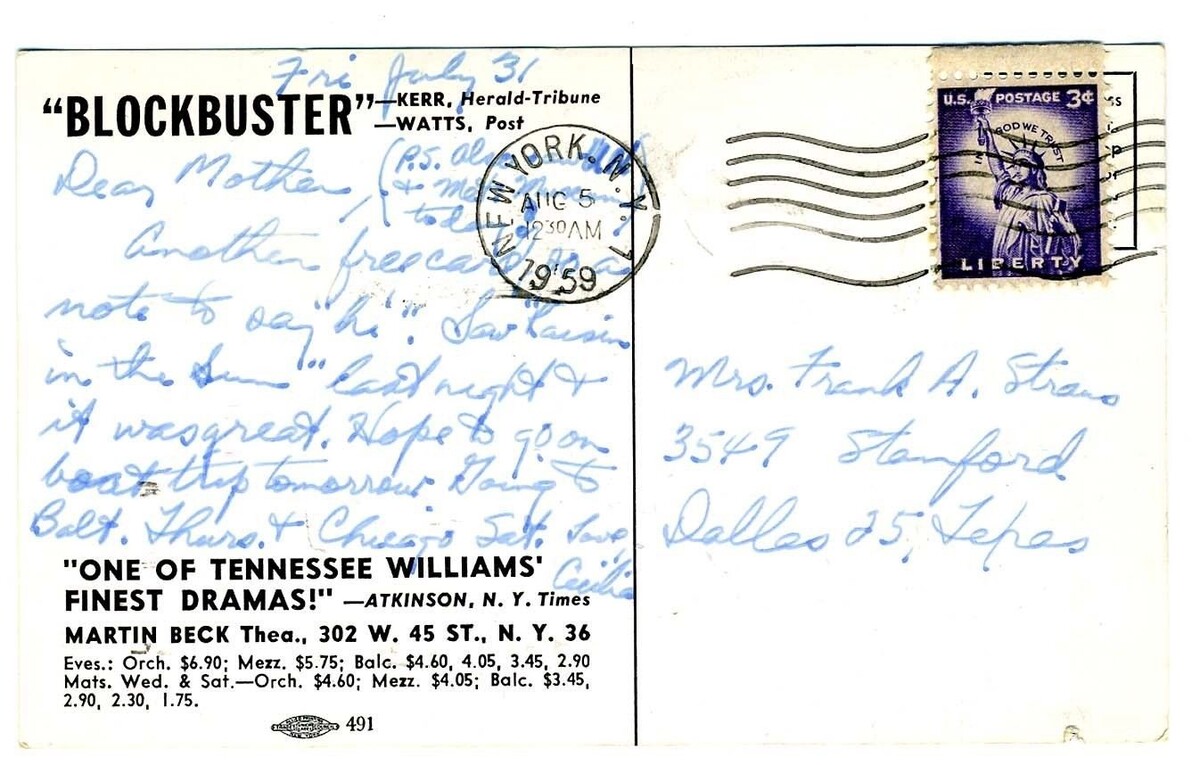 Fri July 31
"BLOCKBUSTER" —KERR, Herald-Tribune
—WATTS, Post
Dear Mother,
(P.S. Also
& Museum
today)
Another free card as a
note to say "hi". Saw "Raisin
in the Sun" last night &
it was great. Hope to go on
boat trip tomorrow. Going to
Balt. Thurs. & Chicago Sat. Love,
Cecilia
"ONE OF TENNESSEE WILLIAMS'
FINEST DRAMAS!" —ATKINSON, N. Y. Times
MARTIN BECK Thea., 302 W. 45 ST., N. Y. 36
Eves.: Orch. $6.90; Mezz. $5.75; Balc. $4.60, 4.05, 3.45, 2.90
Mats. Wed. & Sat.—Orch. $4.60; Mezz. $4.05; Balc. $3.45,
2.90, 2.30, 1.75.
491
NEW YORK, N.Y. 1
AUG 5
12 30 AM
1959
U.S. POSTAGE 3¢
IN GOD WE TRUST
LIBERTY
Mrs. Frank A. Straus
3549 Stanford
Dallas 25, Texas